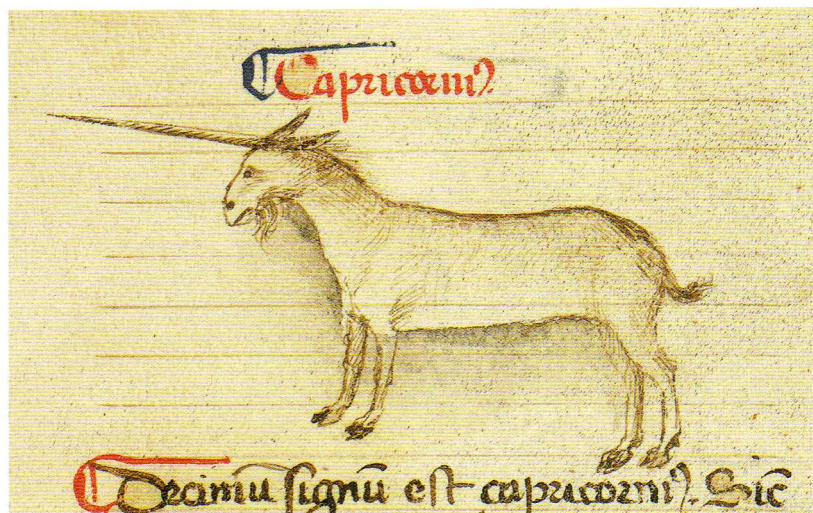 Capricorniꝰ
Decimū signū est capricorniꝰ. Sic